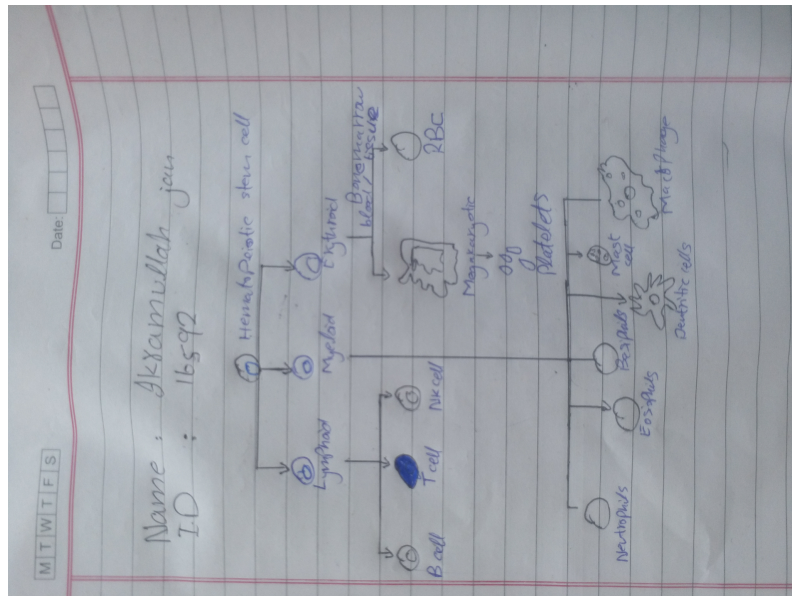 M T W T F S
Date:
Name : Ikramullah jan
ID : 16592
Hematopoiotic stem cell
Lymphoid Myeloid Erythroid
Bonemarrow
blood/
B.cell T cell NK cell Megakaryotic RBC
Platelets
Neutrophils Eosophils Basphils Dentritic cells Mast cell Macrophage